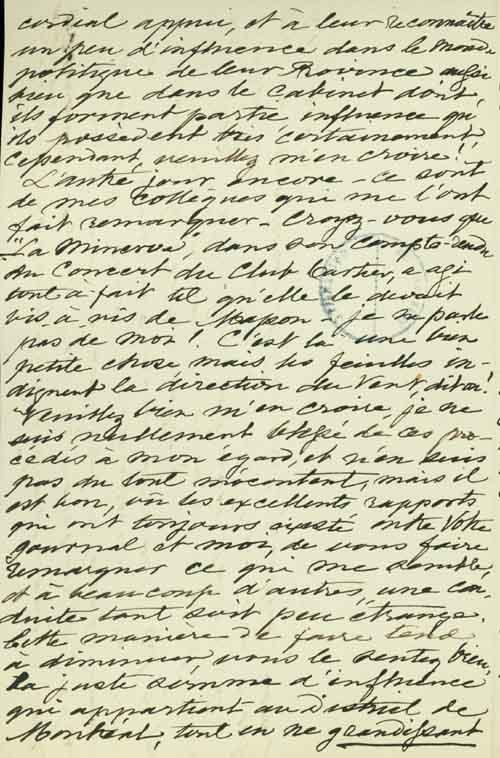 cordial appui, et à leur reconnaître
un peu d'influence dans le monde
politique de leur Province aussi
bien que dans le cabinet dont
ils forment partie influence qu'
ils possèdent très certainement,
cependant, veuillez m'en croire!
L'autre jour encore - ce sont
de mes collègues qui me l'ont
fait remarquer - Croyez-vous que
"La Minerve", dans son compte-rendu
du Concert du Club Cartier, a agi
tout à fait tel qu'elle le devait
vis-à-vis de Masson je ne parle
pas de moi! C'est là une bien
petite chose, mais les feuilles in-
diquent la direction du vent, dit-on!
Veuillez bien m'en croire, je ne
suis nullement blessé de ces pro-
cédés à mon égard, et n'en suis
pas du tout mécontent, mais il
est bon, vu les excellents rapports
qui ont toujours existé entre votre
journal et moi, de vous faire
remarquer ce qui me semble,
et à beaucoup d'autres, une con-
duite tant soit peu étrange.
Cette manière de faire tend
à diminuer, vous le sentez bien,
la juste somme d'influence
qui appartient au District de
Montréal, tout en ne grandissant